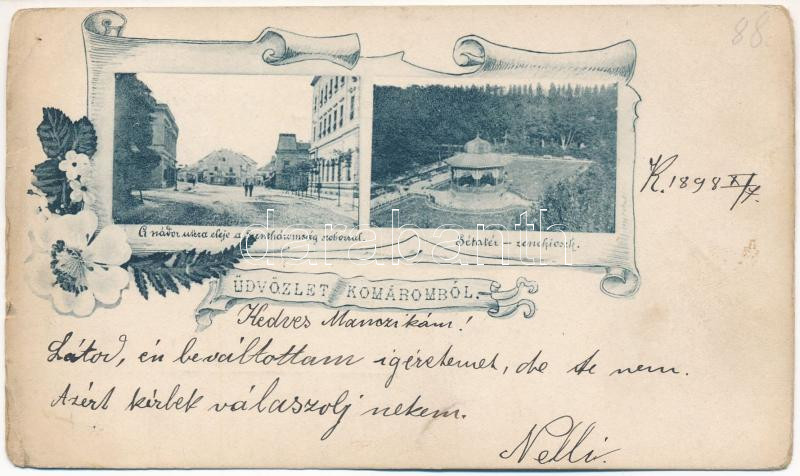 88.
A nádor utca eleje a Szentháromság szoborral.
Sétatér - zenekioszk.
K. 1898 X/X.
ÜDVÖZLET KOMÁROMBÓL.
darabanth
Kedves Manczikám!
Látod, én beváltottam igéretemet, de te nem.
Azért kérlek válaszolj nekem.
Nelli.